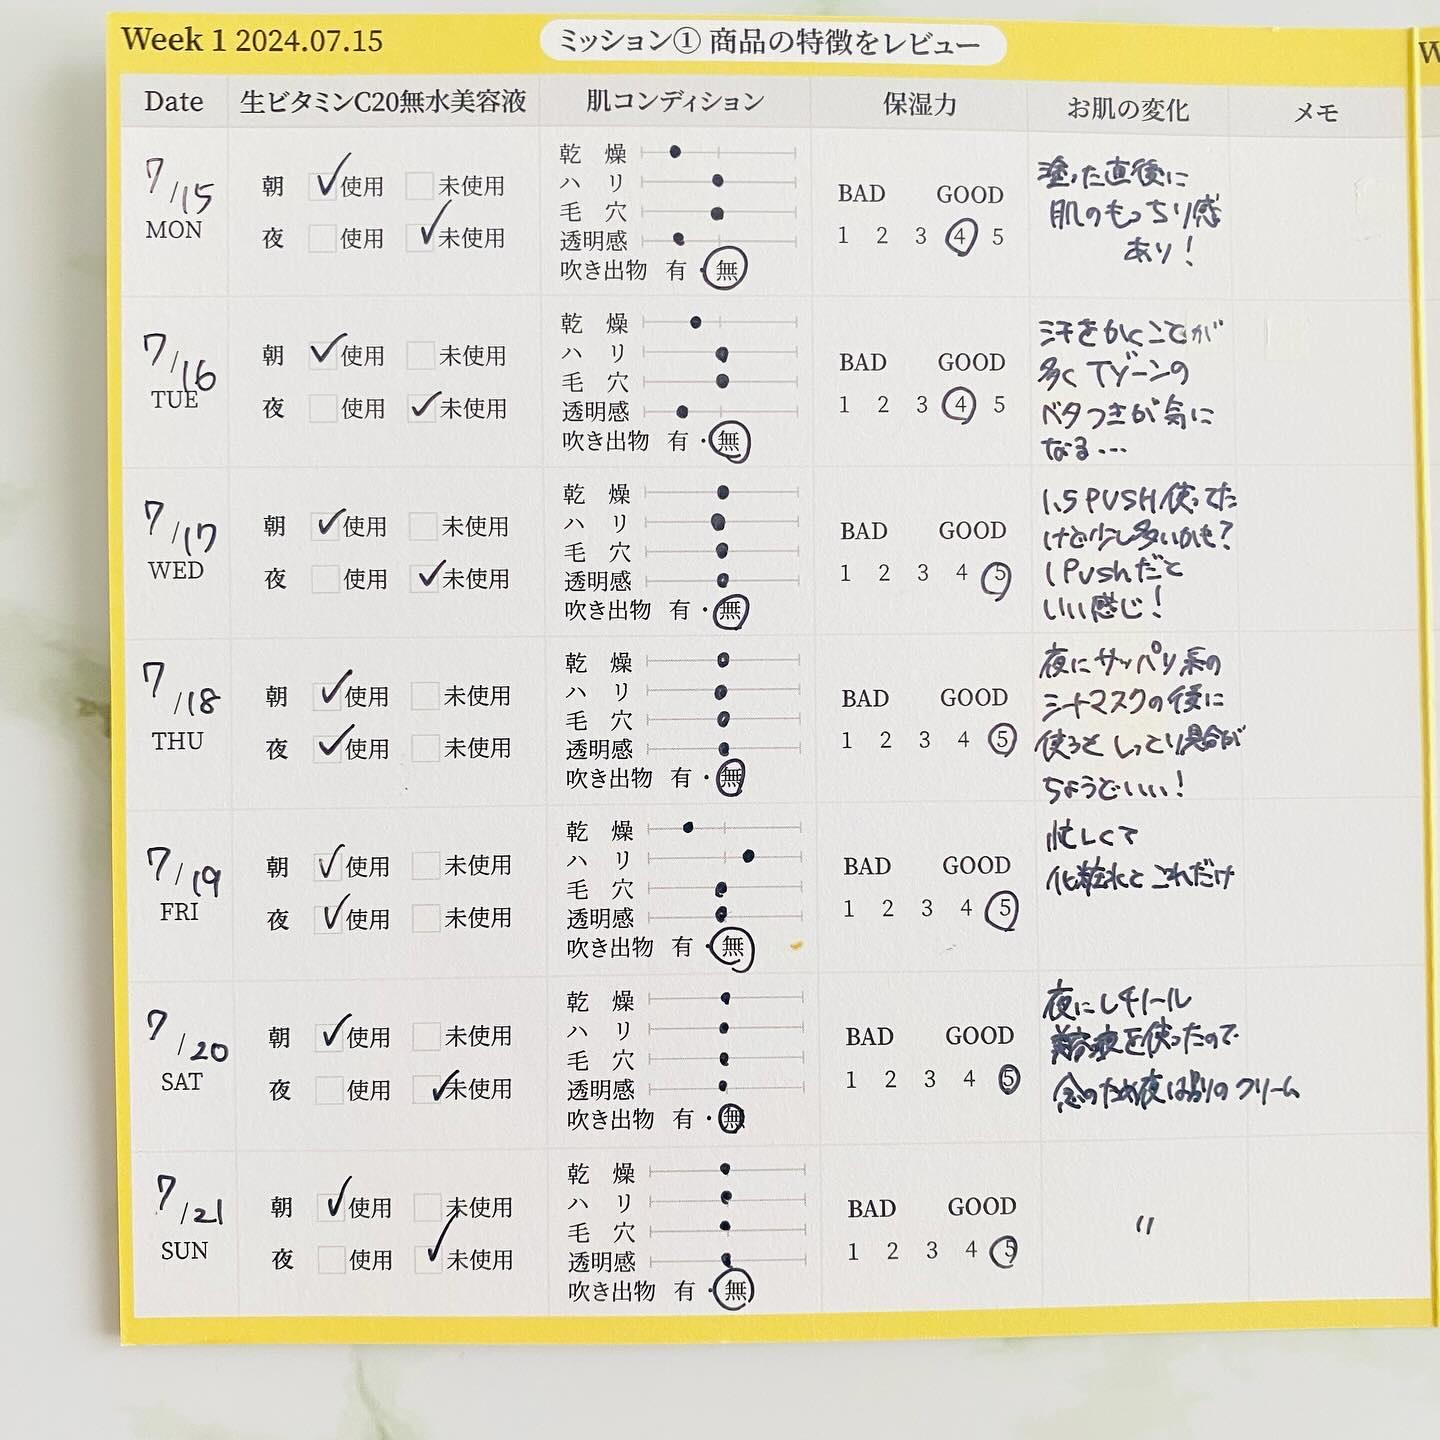 Week 1 2024.07.15
ミッション① 商品の特徴をレビュー
W
Date 生ビタミンC20無水美容液 肌コンディション 保湿力 お肌の変化 メモ
7/15
MON
朝 使用 未使用
夜 使用 未使用
乾燥
ハリ
毛穴
透明感
吹き出物 有・無
BAD GOOD
1 2 3 4 5
塗った直後に
肌のもっちり感
あり!
7/16
TUE
朝 使用 未使用
夜 使用 未使用
乾燥
ハリ
毛穴
透明感
吹き出物 有・無
BAD GOOD
1 2 3 4 5
汗をかくことが
多くTゾーンの
ベタつきが気に
なる…
7/17
WED
朝 使用 未使用
夜 使用 未使用
乾燥
ハリ
毛穴
透明感
吹き出物 有・無
BAD GOOD
1 2 3 4 5
1.5 PUSH使ってた
けど少し多いかも?
1 Pushだと
いい感じ!
7/18
THU
朝 使用 未使用
夜 使用 未使用
乾燥
ハリ
毛穴
透明感
吹き出物 有・無
BAD GOOD
1 2 3 4 5
夜にサッパリ系の
シートマスクの後に
使うとしっとり具合が
ちょうどいい!
7/19
FRI
朝 使用 未使用
夜 使用 未使用
乾燥
ハリ
毛穴
透明感
吹き出物 有・無
BAD GOOD
1 2 3 4 5
忙しくて
化粧水とこれだけ
7/20
SAT
朝 使用 未使用
夜 使用 未使用
乾燥
ハリ
毛穴
透明感
吹き出物 有・無
BAD GOOD
1 2 3 4 5
夜にレチノール
美容液を使ったので
念のため夜は別のクリーム
7/21
SUN
朝 使用 未使用
夜 使用 未使用
乾燥
ハリ
毛穴
透明感
吹き出物 有・無
BAD GOOD
1 2 3 4 5
〃